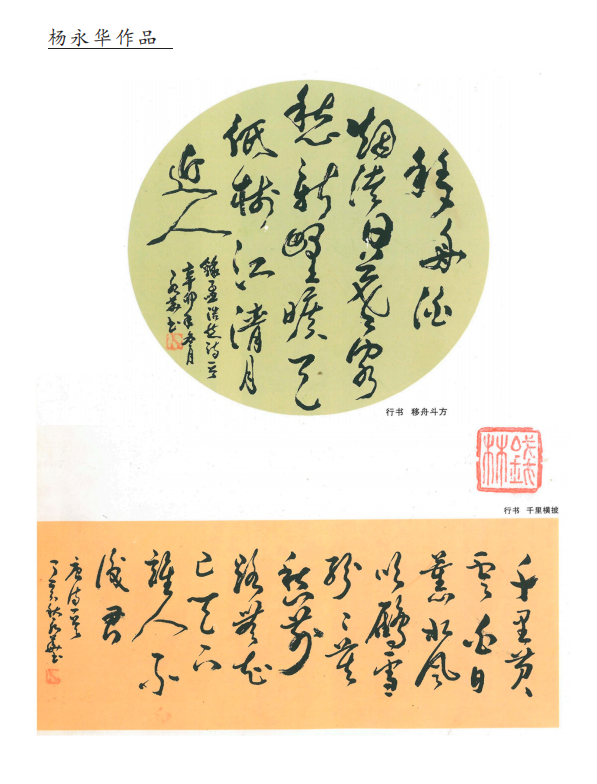 杨永华作品
移舟泊
烟渚日暮客
愁新野曠天
低树江清月
近人
録孟浩然诗一首
辛卯年冬月
永华书
行书 移舟斗方
行书 千里横披
千里黄
雲白日
曛北风
吹雁雪
纷纷莫
愁前
路无知
己天下
谁人不
識君
唐诗一首
丁亥秋永华书